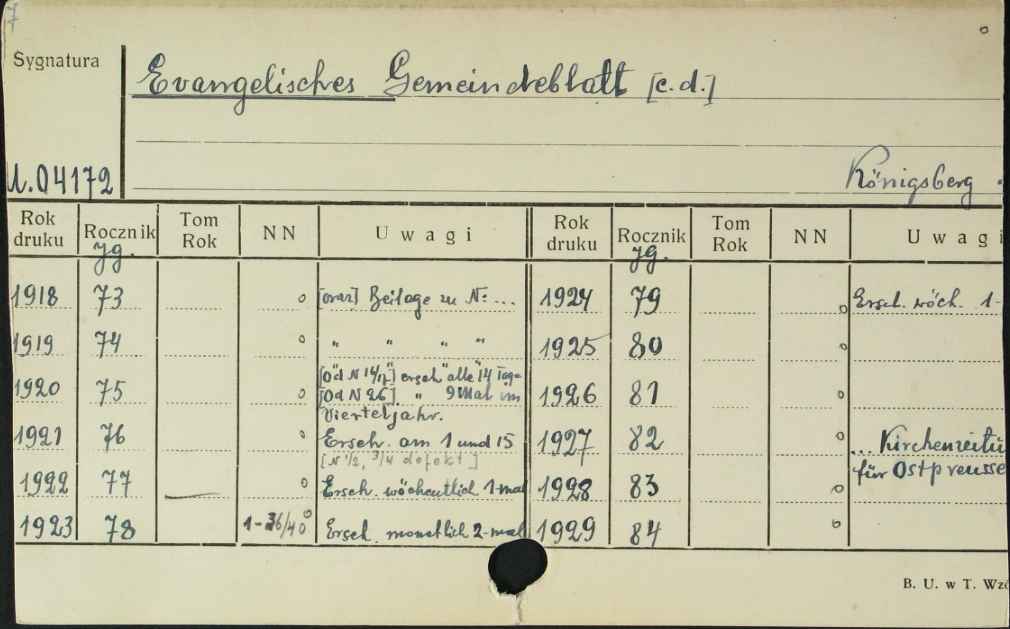 7
Sygnatura
Evangelisches Gemeindeblatt [c.d.]
04172
Königsberg
Rok druku Rocznik Jg. Tom Rok NN Uwagi Rok druku Rocznik Jg. Tom Rok NN Uwagi
1918 73 o [oraz] Beilage zu N: ... 1924 79 o Ersch. wöch. 1-
1919 74 o " " " " 1925 80 o
1920 75 o [Od N 14/15] ersch "alle" 14 Tage
[Od N 26] " 9 Mal im
Vierteljahr. 1926 81 o
1921 76 o Ersch. am 1 und 15
[N 1/2, 3/4 defekt] 1927 82 o ... Kirchenzeitu
für Ostpreusse
1922 77 o Ersch. wöchentlich 1-mal 1928 83 o
1923 78 1-36/40 o Ersch. monatlich 2-mal 1929 84 o
B. U. w T. Wzó